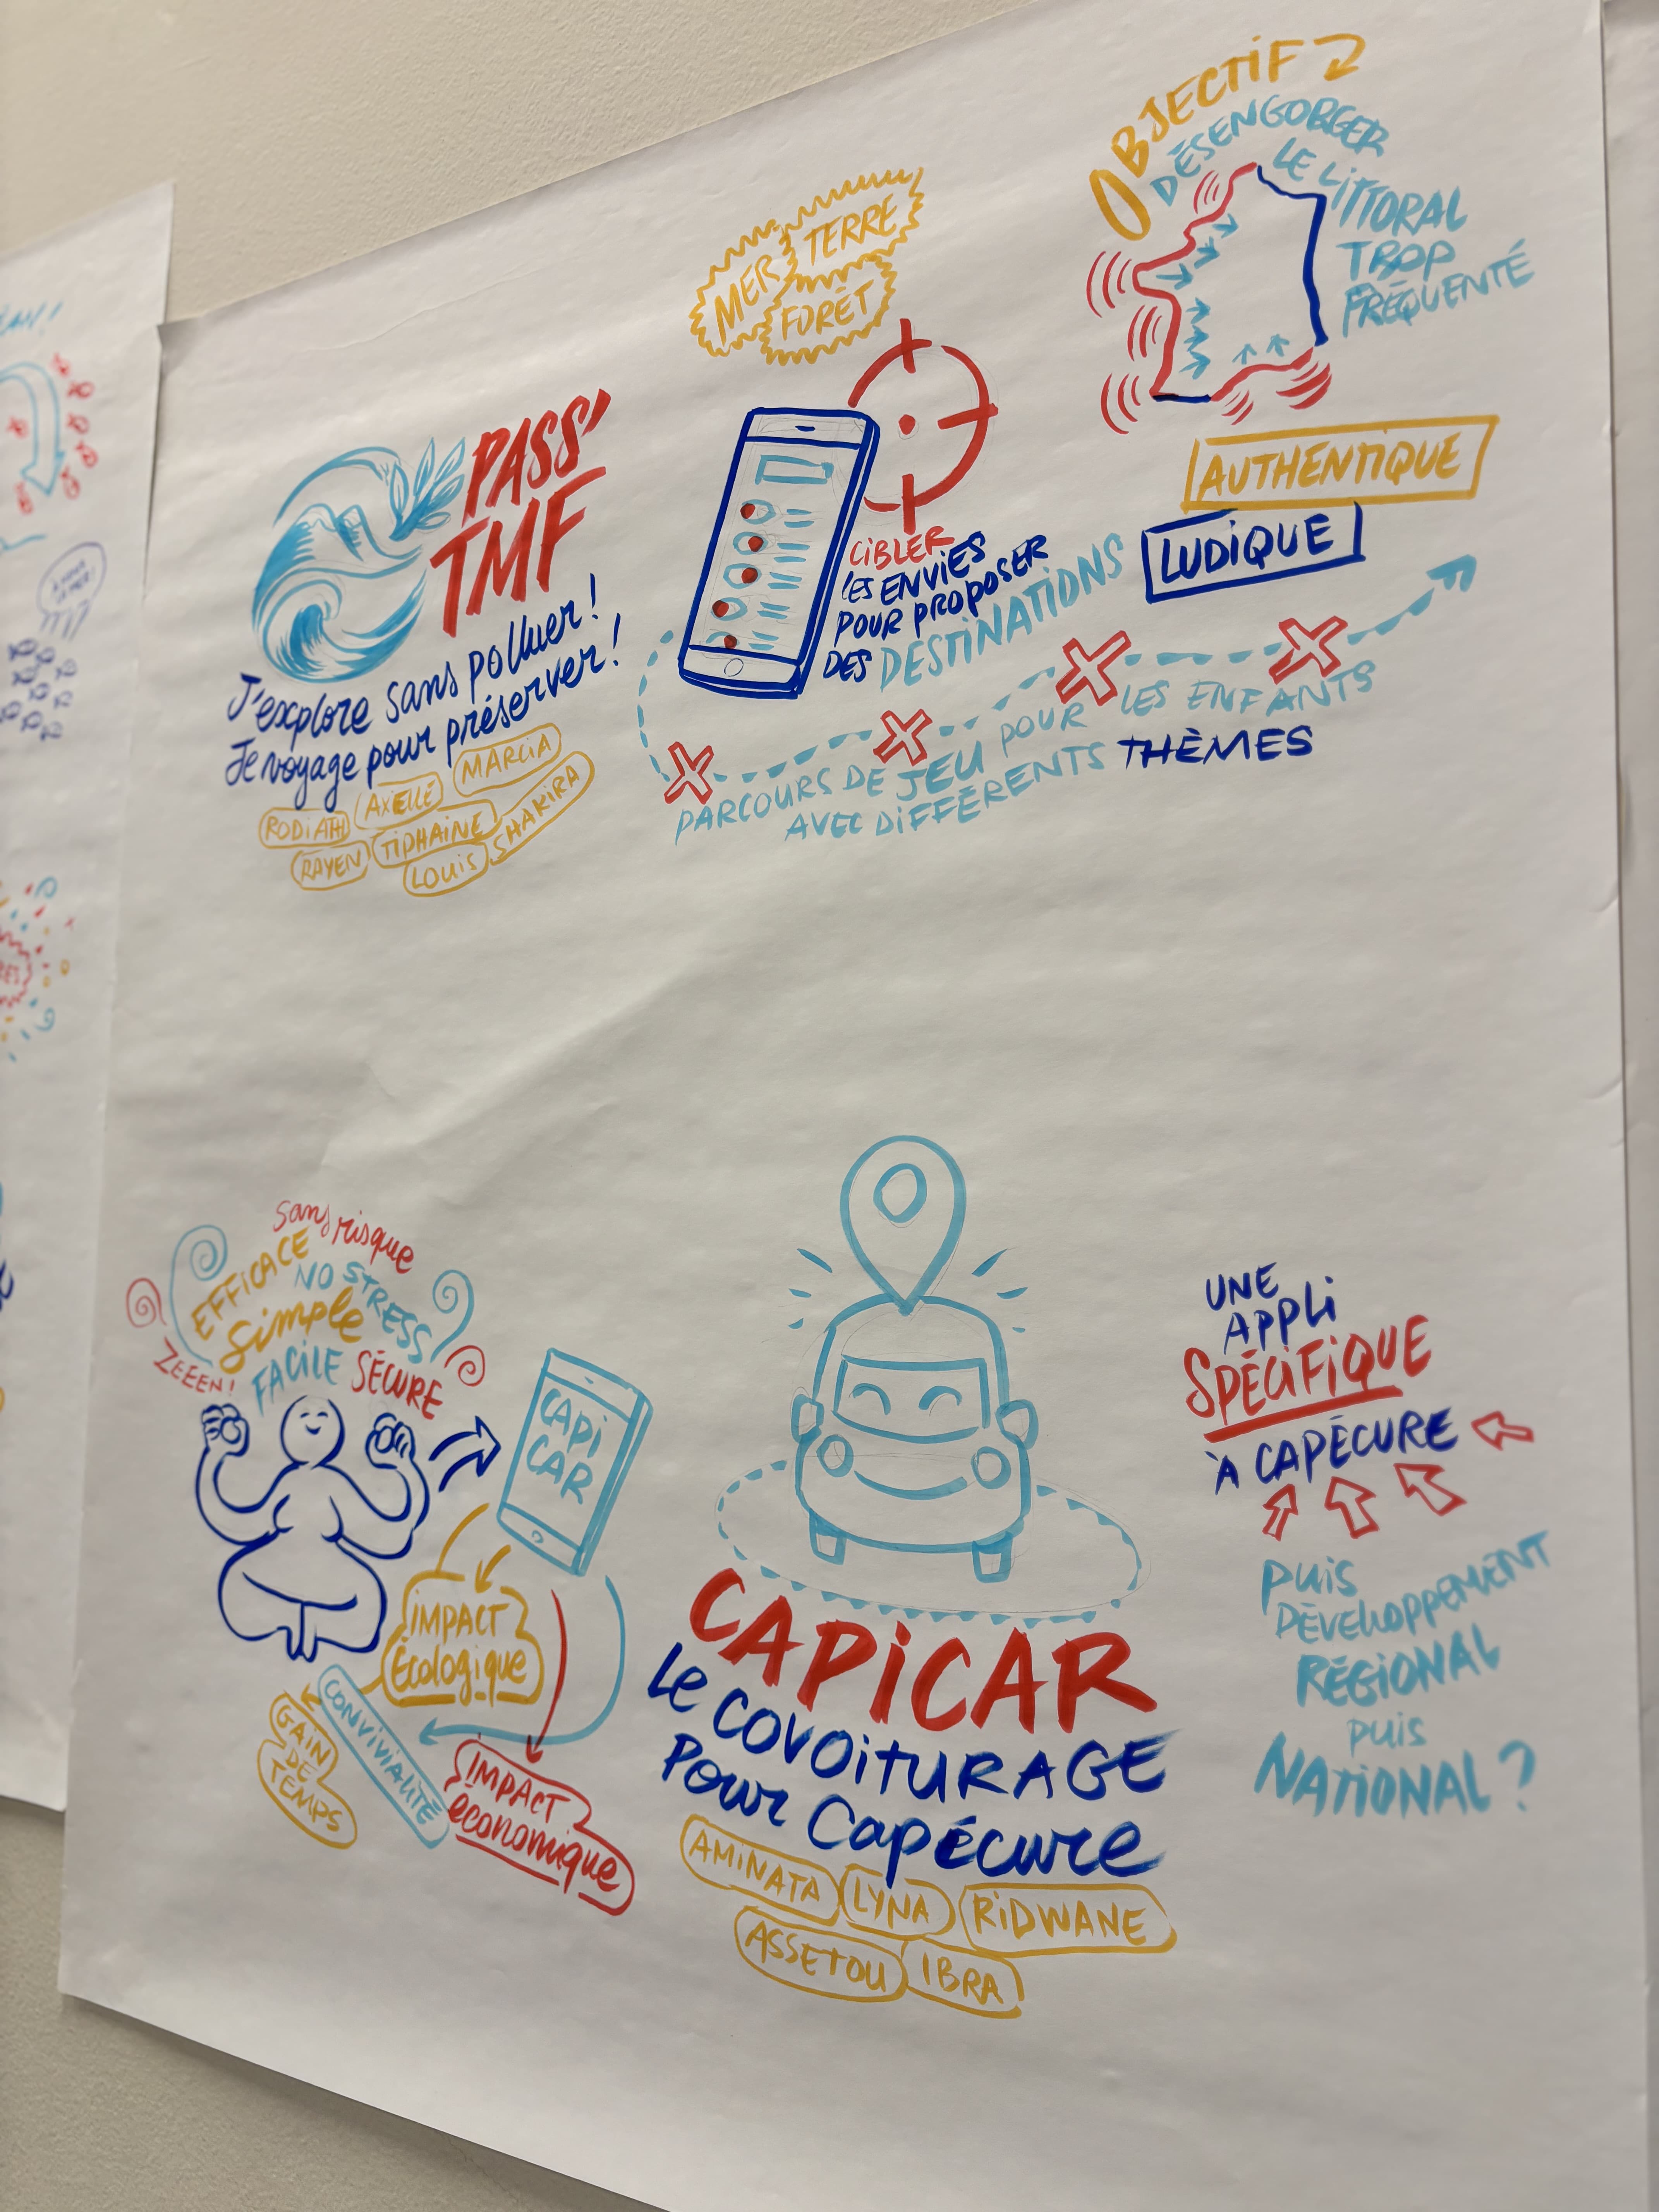 OBJECTIF
DÉSENGORGER
LE LITTORAL
TROP
FRÉQUENTÉ
MER TERRE
FORÊT
PASS'
TMF
J'explore sans polluer!
Je voyage pour préserver!
RODIATH AXELLE MARCIA
RAYEN TIPHAINE SHAKIRA
LOUIS
CIBLER
LES ENVIES
POUR PROPOSER
DES DESTINATIONS
AUTHENTIQUE
LUDIQUE
PARCOURS DE JEU POUR LES ENFANTS
AVEC DIFFÉRENTS THÈMES
sans risque
EFFICACE
NO STRESS
simple
ZEEEN!
FACILE SÉCURE
CAPI
CAR
IMPACT
Écologique
CONVIVIALITÉ
GAIN
DE
TEMPS
IMPACT
économique
CAPiCAR
Le COVOiTURAGE
Pour Capécure
AMINATA LYNA RiDWANE
ASSETOU IBRA
UNE
APPLi
SPÉCiFiQUE
À CAPÉCURE
PUiS
DÉVELOPPEMENT
RÉGIONAL
PUiS
NATiONAL ?